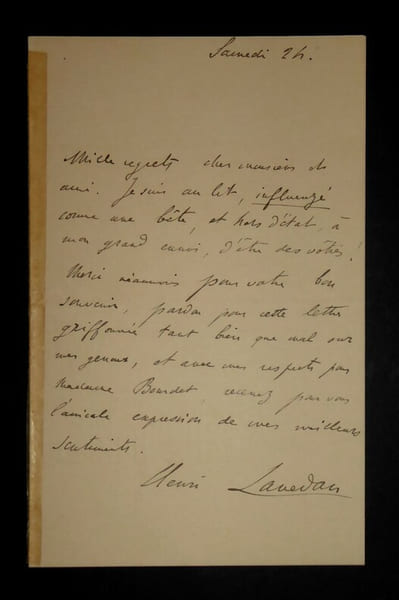 Samedi 24.
Mille regrets cher monsieur et
ami. Je suis au lit, influenzé
comme une bête, et hors d'état, à
mon grand ennui, d'être des vôtres!
Merci néanmoins pour votre bon
souvenir, pardon pour cette lettre
griffonnée tant bien que mal sur
mes genoux, et avec mes respects pour
Madame Bourdet, recevez pour vous
l'amicale expression de mes meilleurs
sentiments.
Henri Lavedan